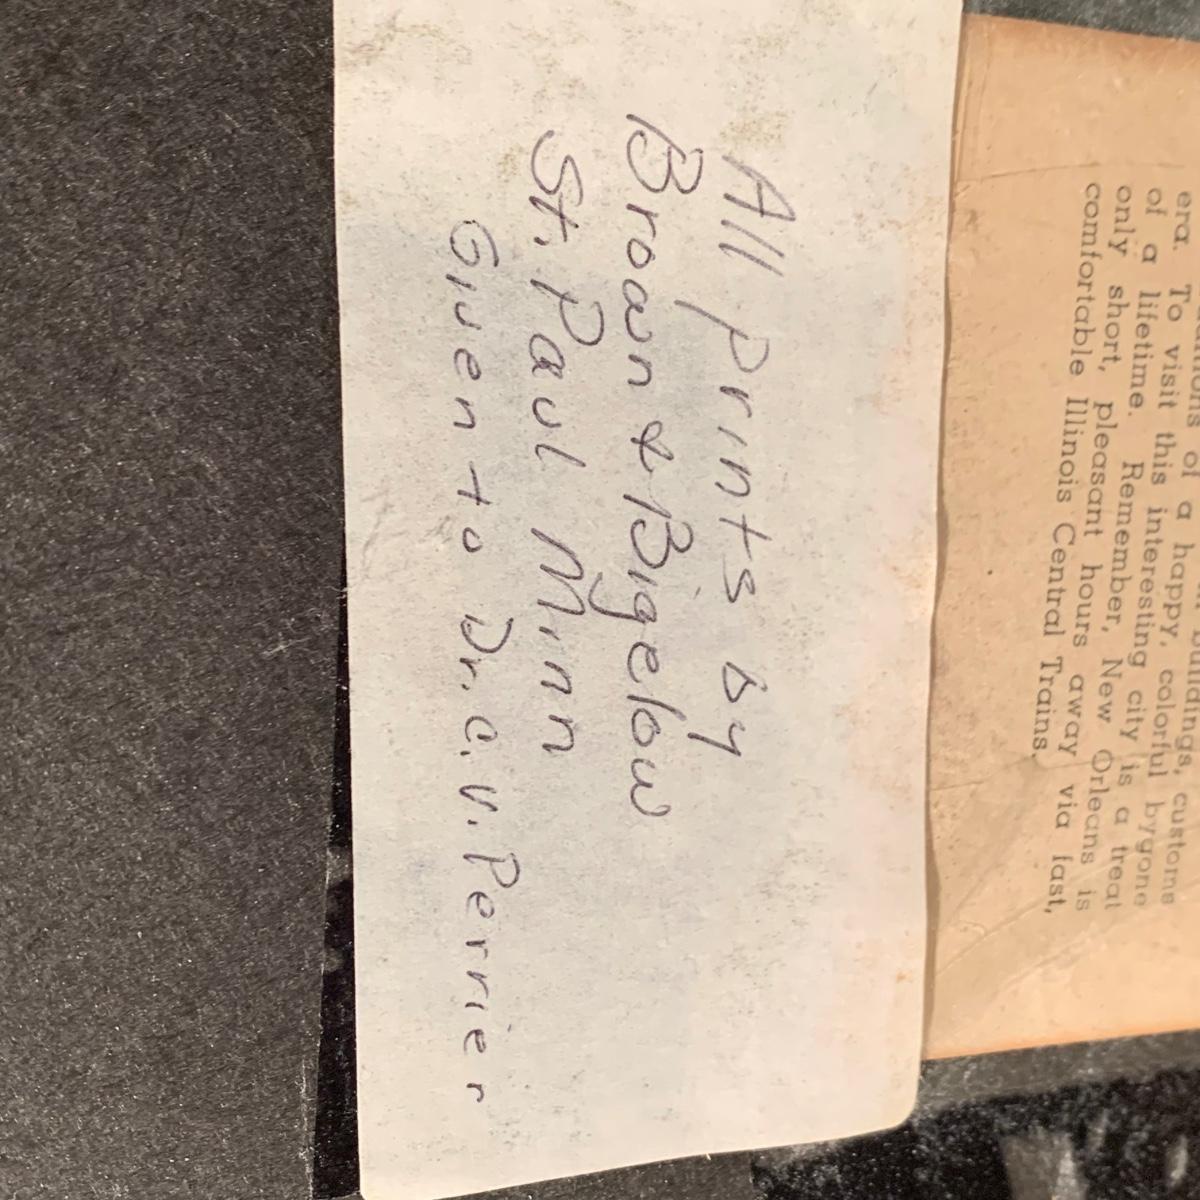 era. To visit this interesting city is a treat
of a lifetime. Remember, New Orleans is
only short, pleasant hours away via fast,
comfortable Illinois Central Trains.
All prints by
Brown & Bigelow
St. Paul Minn
Given to Dr. C. V. Perrier